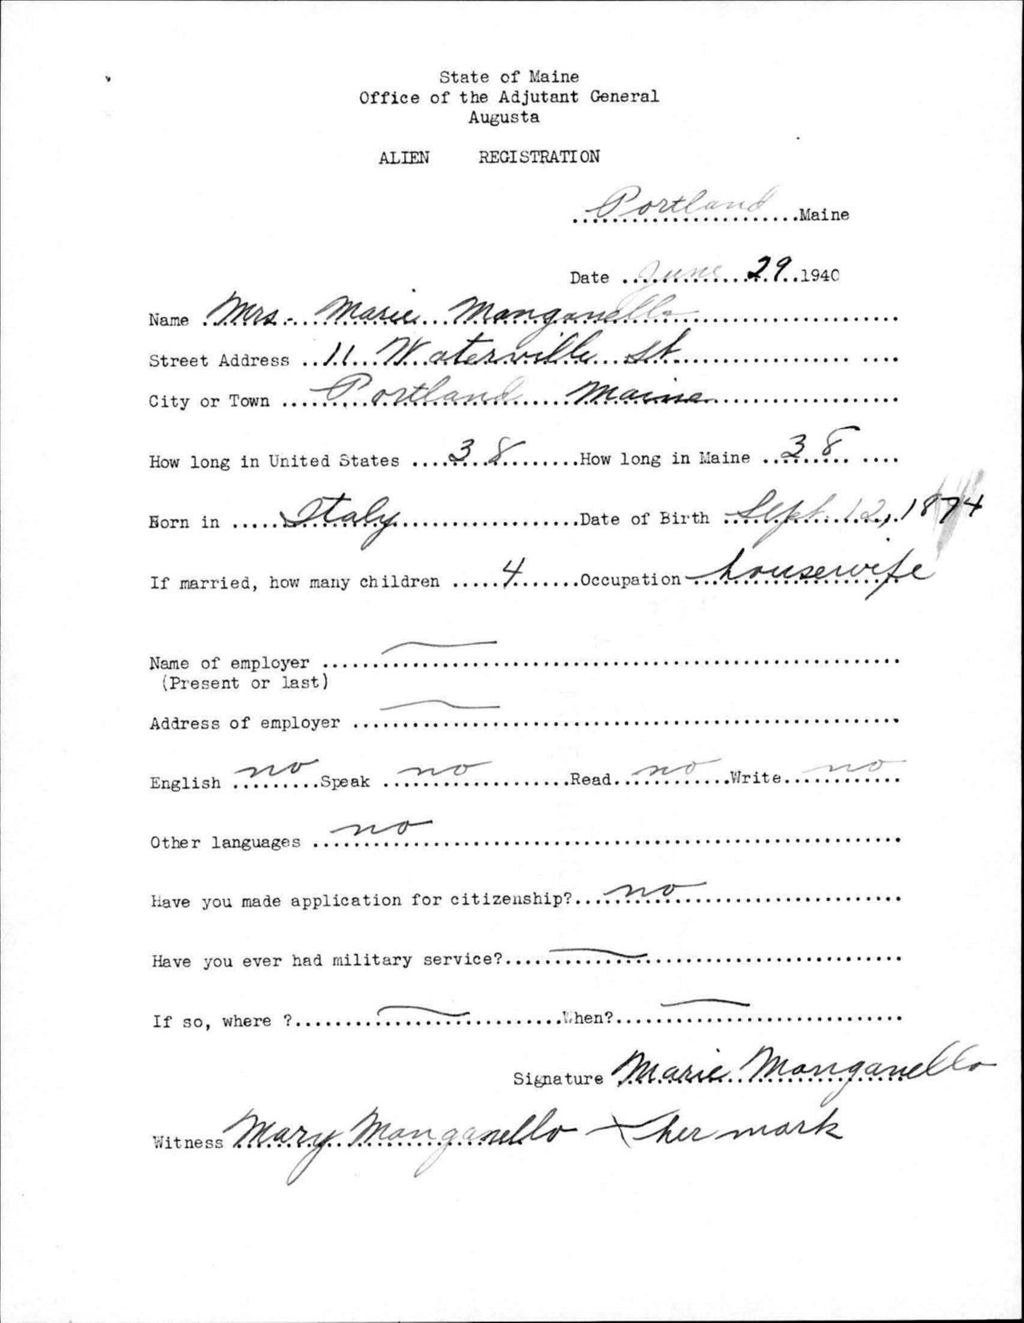 State of Maine
Office of the Adjutant General
Augusta
ALIEN REGISTRATION
Portland Maine
Date June 29 1940
Name Mrs. Marie Manganello
Street Address 11 Waterville St
City or Town Portland Maine
How long in United States 38 How long in Maine 38
Born in Italy Date of Birth Sept. 12, 1874
If married, how many children 4 Occupation housewife
Name of employer
(Present or last)
Address of employer
English no Speak no Read no Write no
Other languages no
Have you made application for citizenship? no
Have you ever had military service?
If so, where ? When?
Signature Marie Manganello
Witness Mary Manganello X her mark